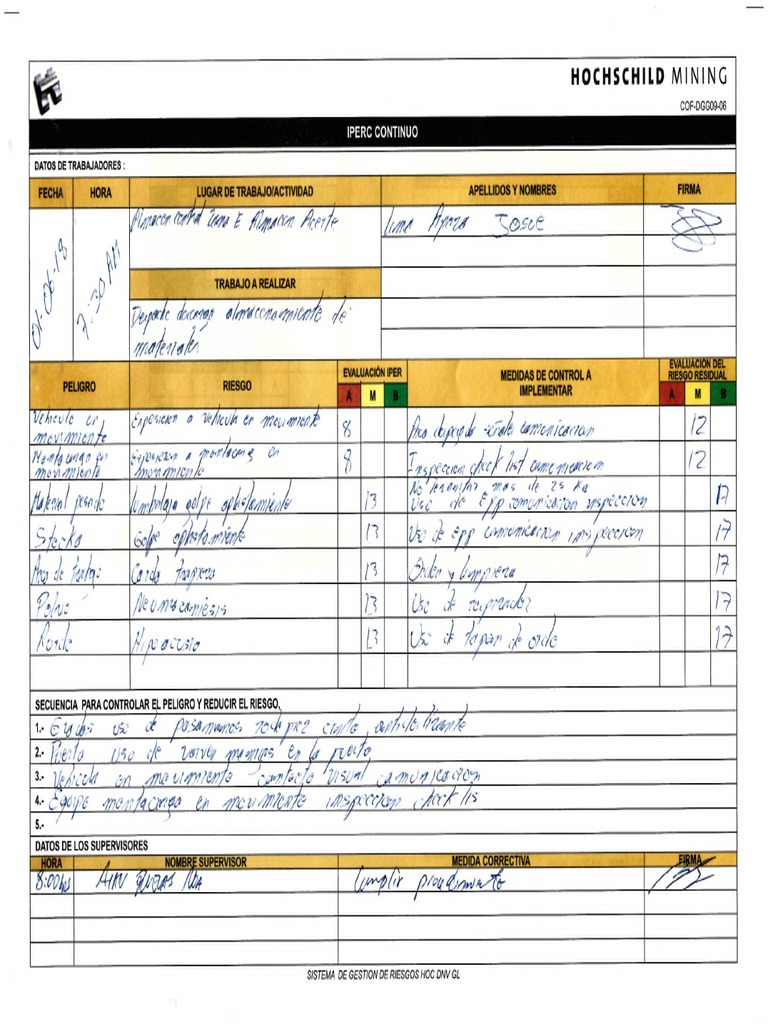 HOCHSCHILD MINING
COF-DGG09-06
IPERC CONTINUO
DATOS DE TRABAJADORES :
FECHA HORA LUGAR DE TRABAJO/ACTIVIDAD APELLIDOS Y NOMBRES FIRMA
01-06-18 7:30 AM Almacen central zona E Almacen Aceite Lima Apaza Josue
TRABAJO A REALIZAR
Despacho descarga almacenamiente de
materiales
PELIGRO RIESGO EVALUACIÓN IPER MEDIDAS DE CONTROL A IMPLEMENTAR EVALUACIÓN DEL RIESGO RESIDUAL
A M B A M B
Vehiculo en movimiente Exposicion a vehicula en movimiente 8 Area despejada señales comunicacion 12
Montacarga en movimiente Exposicion a montacarg en movimiente 8 Inspeccion check list comunicacion 12
Material pesado lumbalgia golpe aplastamiente 13 No levantar mas de 25 Kg Uso de Epp comunicacion inspeccion 17
Stocka Golpe aplastamiente 13 Uso de Epp comunicacion inspeccion 17
Area de trabajo Caida tropiezo 13 Orden y limpieza 17
Polvo Neumoconiosis 13 Uso de respirador 17
Ruido Hipoacusia 13 Uso de tapon de oido 17
SECUENCIA PARA CONTROLAR EL PELIGRO Y REDUCIR EL RIESGO.
1.- uso de pasamanos cinta antideslizante
2.- Puerta uso de en la puerta
3.- Vehicula en movimiente contacto visual comunicacion
4.- Equipo montacarga en movimiente inspeccion check lis
5.-
DATOS DE LOS SUPERVISORES
HORA NOMBRE SUPERVISOR MEDIDA CORRECTIVA FIRMA
8:00 hrs Cumplir procedimiento
SISTEMA DE GESTION DE RIESGOS HOC DNV GL